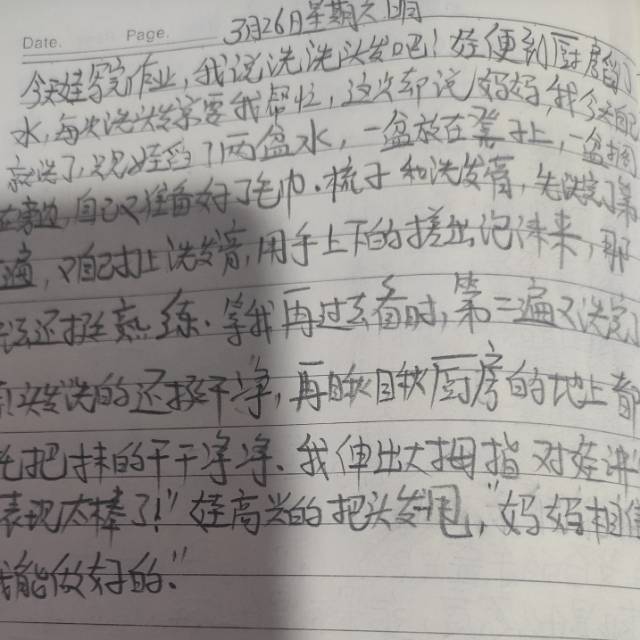 Date. Page. 3月26日 星期六 晴
今天娃写完作业，我说洗洗头发吧！娃便到厨房
水，每次洗头发都要我帮忙，这次却说，妈妈，我今天自
了两盆水，一盆放在凳子上，一盆
自己又准备好了毛巾、梳子和洗发膏，先洗了第
遍，又自己打上洗发膏，用手上下的搓出泡沫来，那
还挺熟练、等我再过去看时，第二遍又洗完
头发洗的还挺干净，再瞅瞅厨房的地上都
把抹的干干净净、我伸出大拇指对娃
表现太棒了！"娃高兴的把头发甩，"妈妈相信
我能做好的."